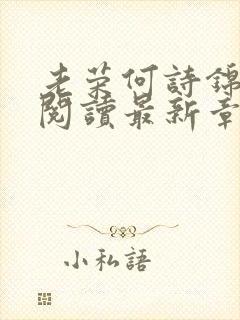 老荣何詩錦
閱讀最新章
小私語